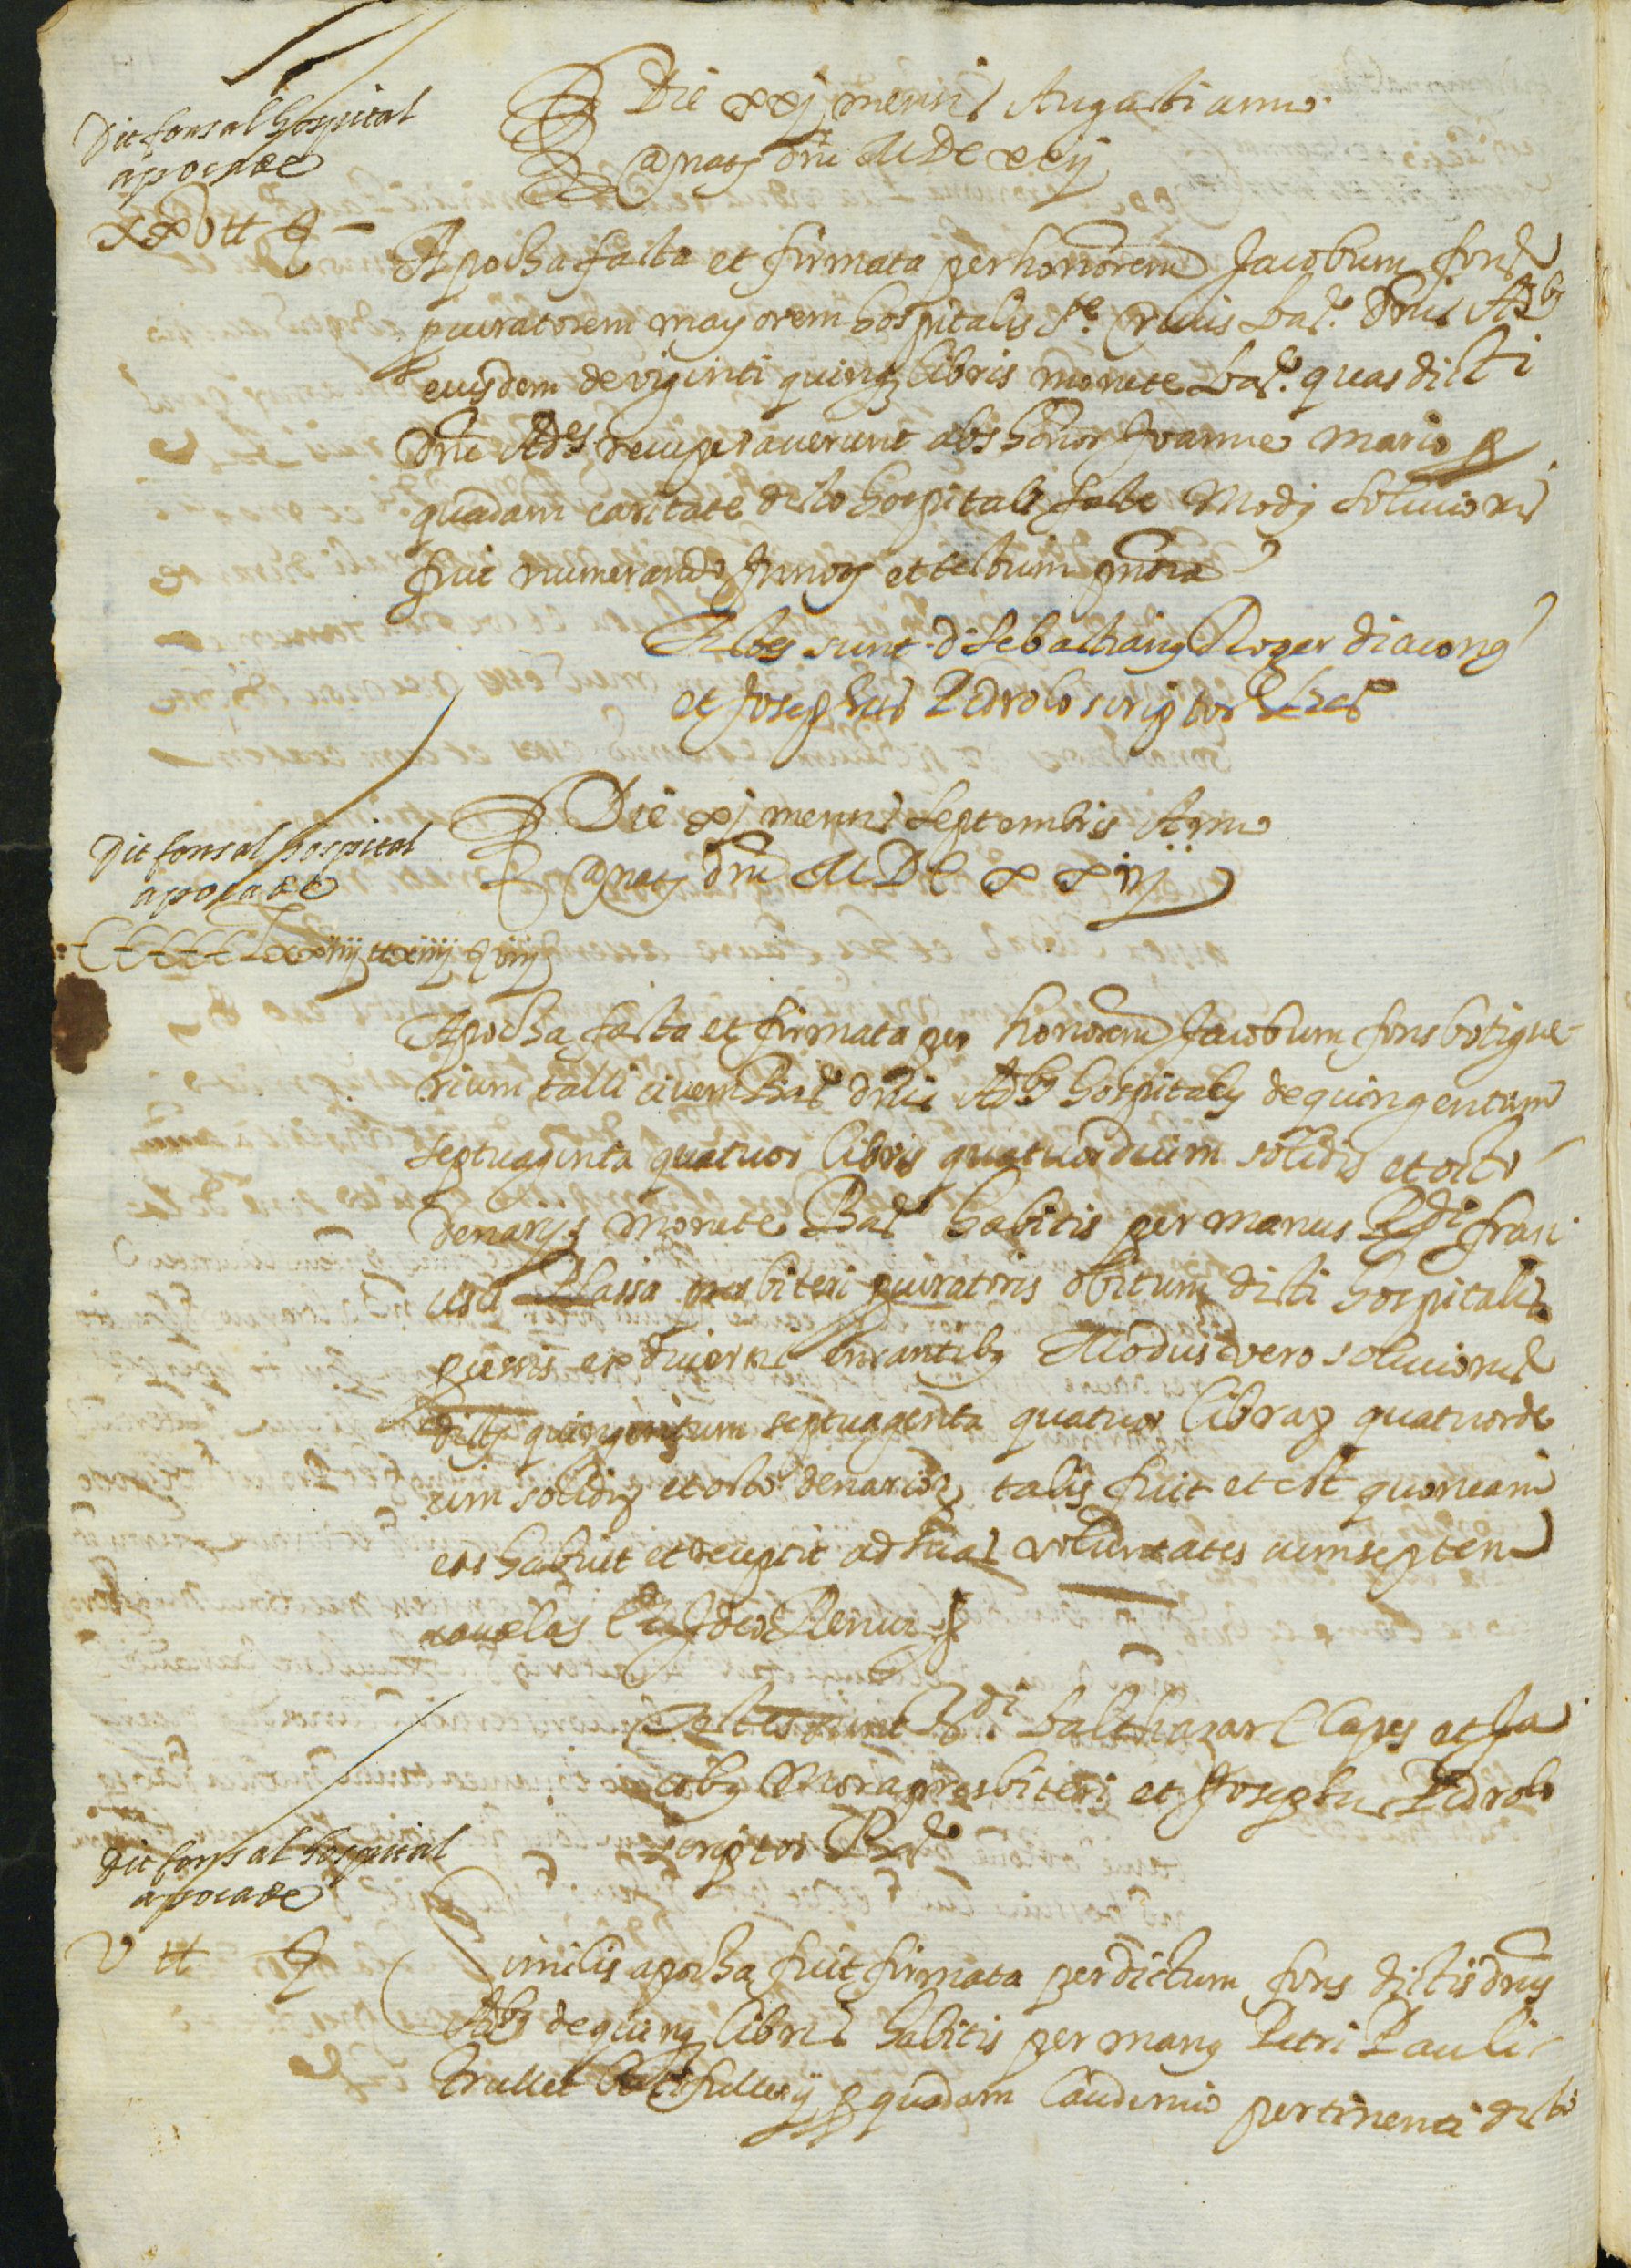 Dit fons al hospital
apoca de
xxv tt ꝭ —
Die xxj mensis Augusti anno
a naty dni MDCxxij
Apocha facta et firmata per honorem Jacobum fons
procuratorem mayorem hospitalis Ste Crucis Bar. dnis Adbz
eiusdem de viginti quinqz libris monete Bar. quas dicti
dni Ades recuperaverunt abs honor Joanne mario p
quadam caritate dicto hospitali facte Mody solucionis
fuit numerando Jnnoty et testium pntia
Testes sunt d Sebastiany Roger diacony
et Josephus Pedrolo scriptor Bar
Dit fons al hospital
apoca de
CCCCCLxxiiij tt xiiij ꝭ viij
Die xj mensis Septembris Anno
a naty dni MDCxxij
Apocha facta et firmata per honorem Jacobum fons botigue
rium talli civem Bar dnis Adbz hospitaly de quingentum
septuaginta quatuor libris quatuordecim solidis et octo
denarijs monete Bar habitis per manus Rdi franci
usci Massa presbiteri procuratoris obituum dicti hospitalis
processis ex diversis intrantibz Modus vero solucionis
dictz quingentum septuaginta quatuor libraz quatuorde
cim solidz et octo denarioz talis fuit et est quoniam
eas habuit et recepit ad suas voluntates cum septem
cautelas Et Ideo Renuz
Testes sunt Rdi balthazar Claper et Ja
coby Mora presbiteri et Josephus Pedrolo
scriptor Bar
Dit fons al hospital
apoca de
v tt ꝭ
Similis apocha fuit firmata per dictum fons dictis dnis
Adbz de quinqz libris habitis per many Petri Pauli
trullet p quodam laudimio pertinenti dicto